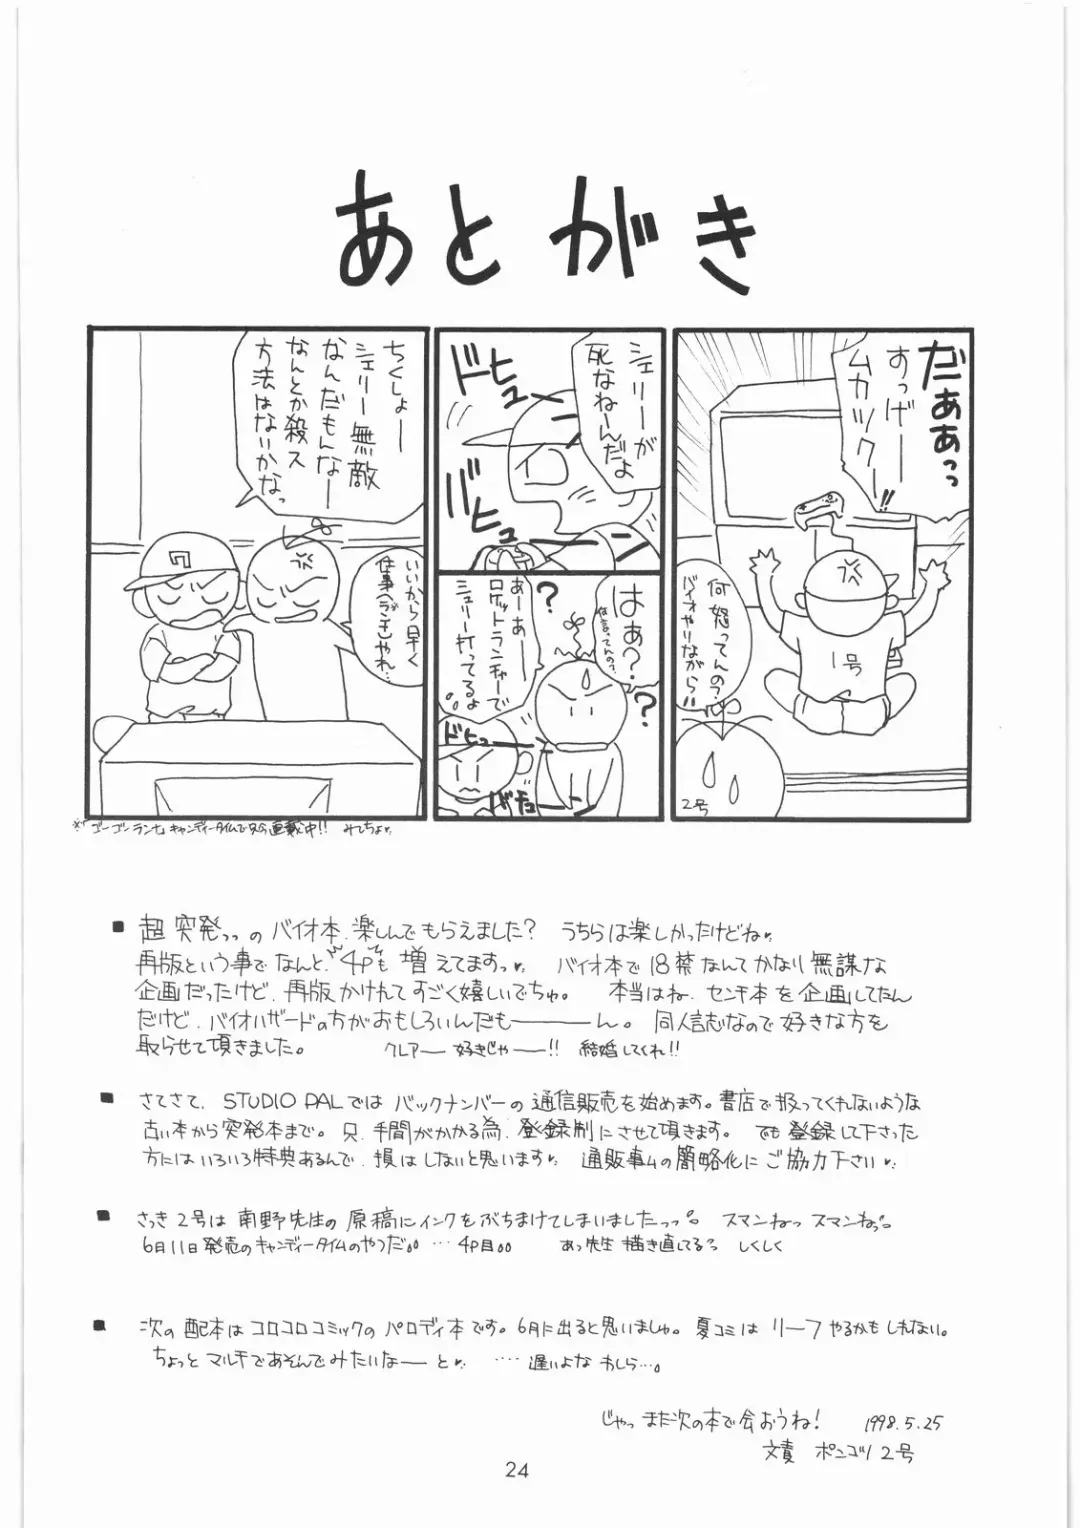 あとがき
だぁぁっ
すっげー
ムカックー!!
何怒ってんの?
バイオやりながら!!
1号
2号
シェリーが
死なねーんだよ
ドヒューン
バヒューン
はぁ?
何言ってんの?
?
?
あーあー
ロケットランチャーで
シェリー打ってるよ
ドヒューン
バギューン
ちくしょー
シェリー無敵
なんだもんなー
なんとか殺ス
方法はないかなっ
いいから早く
やれ…
■超突発っっのバイオ本、楽しんでもらえました? うちらは楽しかったけどね
再版という事でなんと、4Pも増えてますっ バイオ本で18禁なんてかなり無謀な
企画だったけど、再版かけれてすごく嬉しいでちゅ。 本当はね、センチ本を企画してたん
だけど、バイオハザードの方がおもしろいんだも———ん。同人誌なので好きな方を
取らせて頂きました。 クレアー好きじゃー!! 結婚してくれ!!
■さてさて、STUDIO PALではバックナンバーの通信販売を始めます。書店で扱ってくれないような
古い本から突発本まで。只、手間がかかる為、登録制にさせて頂きます。でも登録して下さった
方にはいろいろ特典あるんで、損はしないと思います 通販事ムの簡略化にご協力下さい
■さっき2号は南野先生の原稿にインクをぶちまけてしまいましたっっ。スマンねっスマンねっ。
6月11日発売のキャンディータイムのやつだ。。…4P目。。 あっ先生描き直してるっ しくしく
■次の配本はコロコロコミックのパロディ本です。6月に出ると思いましゅ。夏コミはリーフやるかもしれない。
ちょっとマルチであそんでみたいなーと ‥‥遅いよなわしら…。
じゃっまた次の本で会おうね! 1998.5.25
文責 ポンコツ2号
24